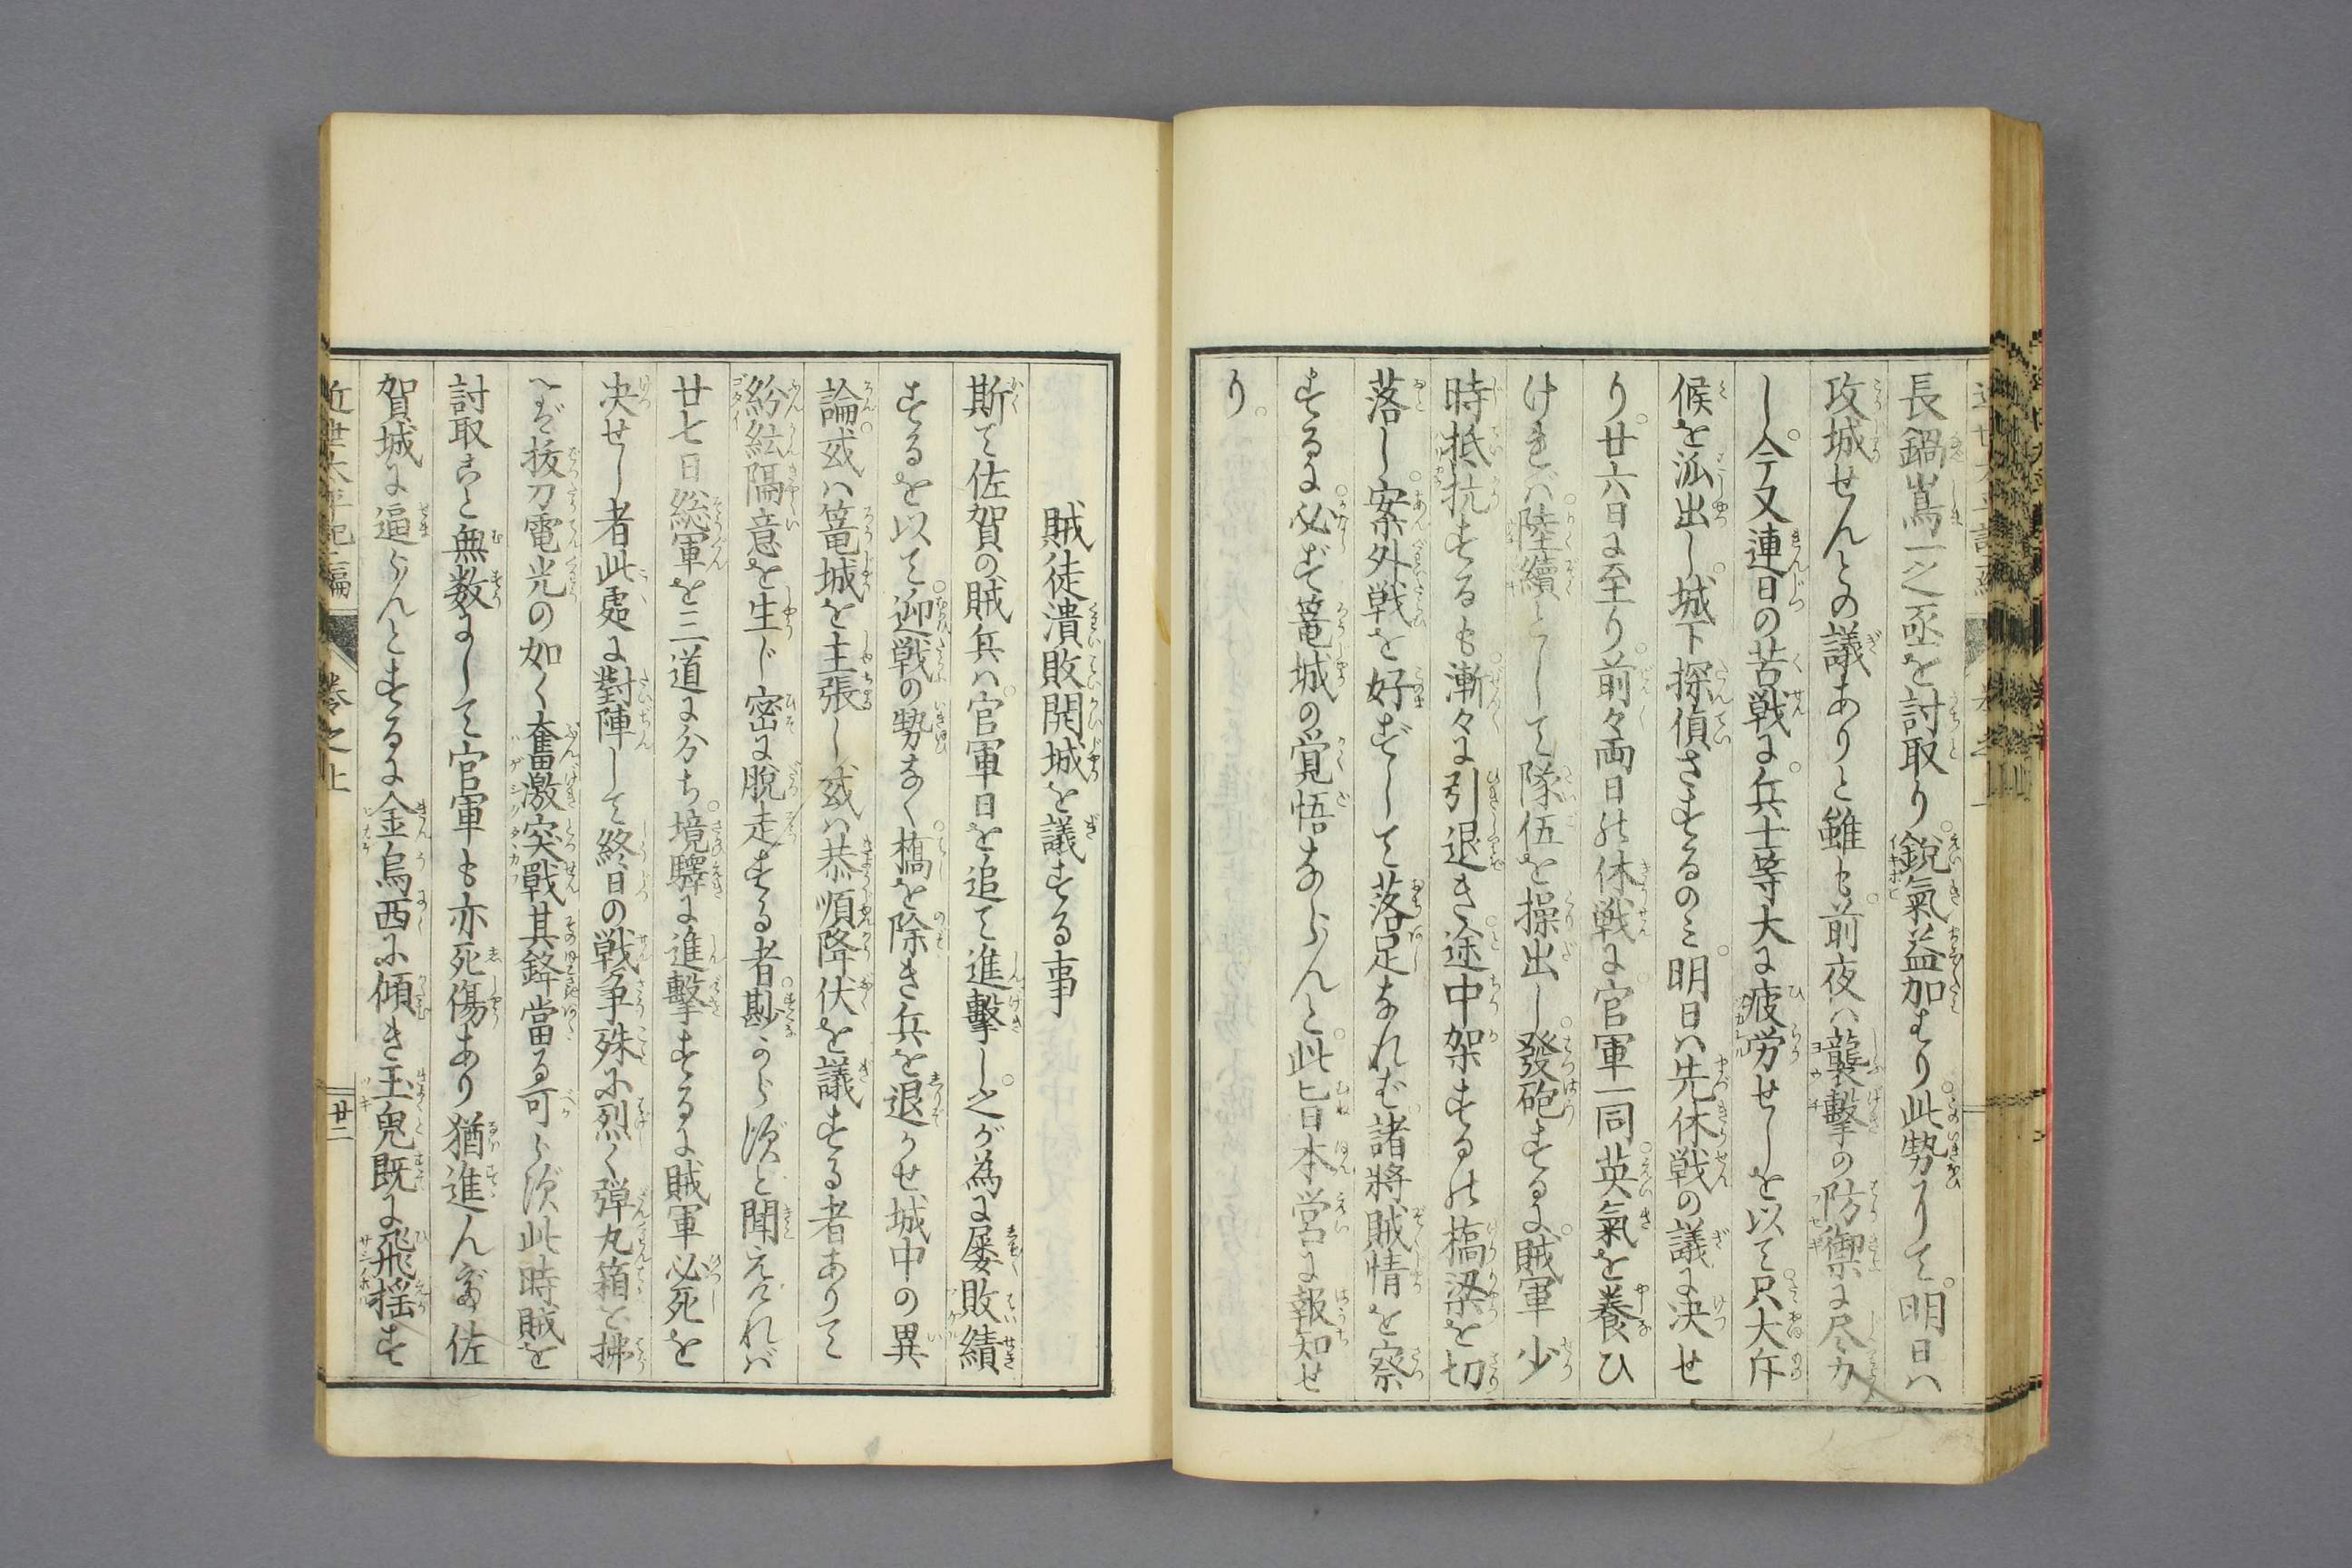 長鍋嶌一之丞を討取り。鋭氣益加はり。此勢りて。明日ハ
攻城せんとの議ありと雖も。前夜ハ襲撃の防禦に尽力
し。今又連日の苦戦に。兵士等大に疲労せしを以て。只大斥
候を派出し。城下探偵さするのミ。明日ハ先休戦の議に决せ
り。廿六日に至り。前々両日の休戦に。官軍一同英氣を養ひ
けれバ。陸續として隊伍を操出し。發砲するに。賊軍少
時抵抗するも。漸々に引退き。途中架する橋梁を切
落し。案外戦を好ずして落足なれバ。諸將賊情を察
するに。必ず篭城の覚悟ならんと。此旨本営に報知せ
り。
賊徒潰敗開城を議する事
斯て佐賀の賊兵ハ。官軍日を追て進擊し。之が為に屡敗績
するを以て。迎戦の勢なく。橋を除き兵を退かせ城中の異
論。或ハ篭城を主張し或ハ恭順降伏を議する者ありて
紛紜隔意を生じ密に脱走する者。尠からずと聞えけれバ
廿七日総軍を三道に分ち。境驛に進擊するに賊軍必死を
决せし者此處に對陣して終日の戦争殊に烈く弾丸箱を拂
へバ抜刀電光の如く奮激突戰其鋒當る可らず此時賊を
討取こと無数にして官軍も亦死傷あり猶進んで佐
賀城に逼らんとするに金烏西に傾き玉兔既に飛揺す
近世太平記二編 巻之上 廿二